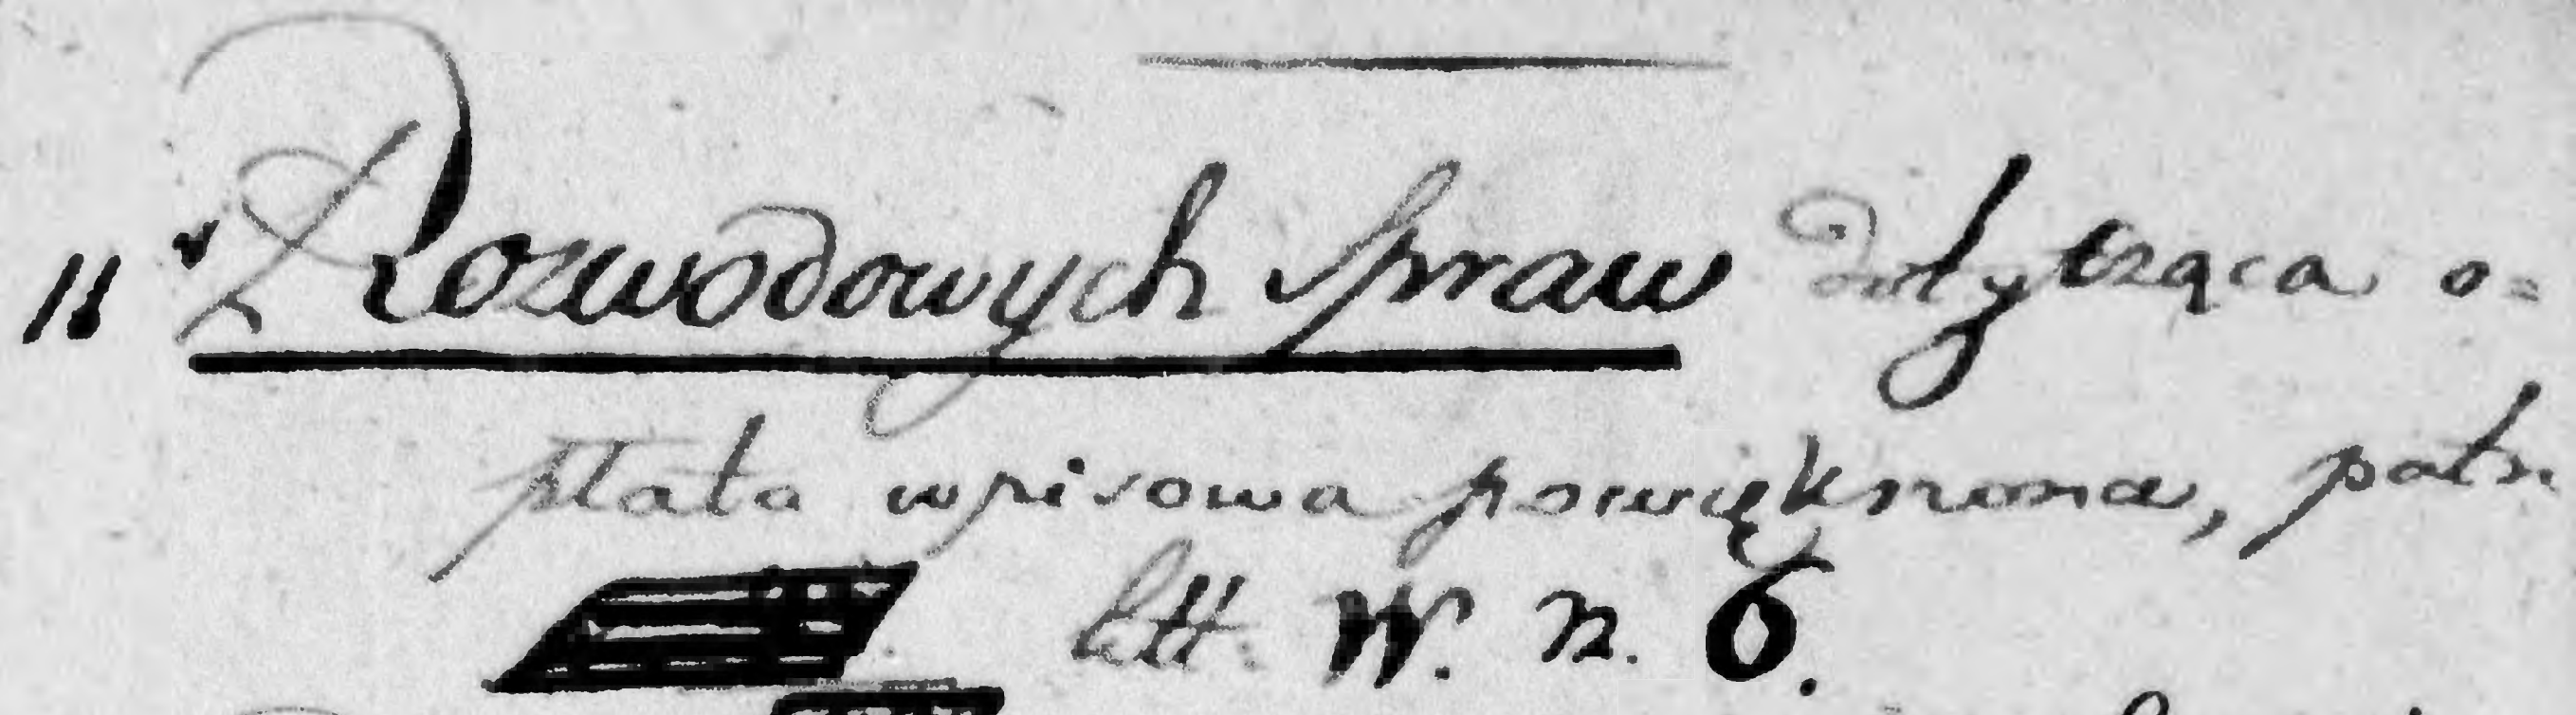 11 Rozwodowych spraw dotycząca o=
płata wpisowa powiększona, patrz
litt. W. n. 6.